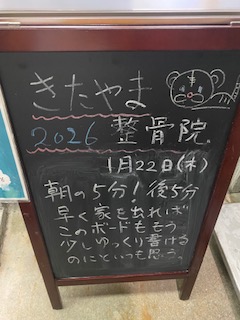 きたやま
2026 整骨院
1月22日(木)
朝の5分!後5分
早く家を出れば
このボードももう
少しゆっくり書ける
のにといつも思う。